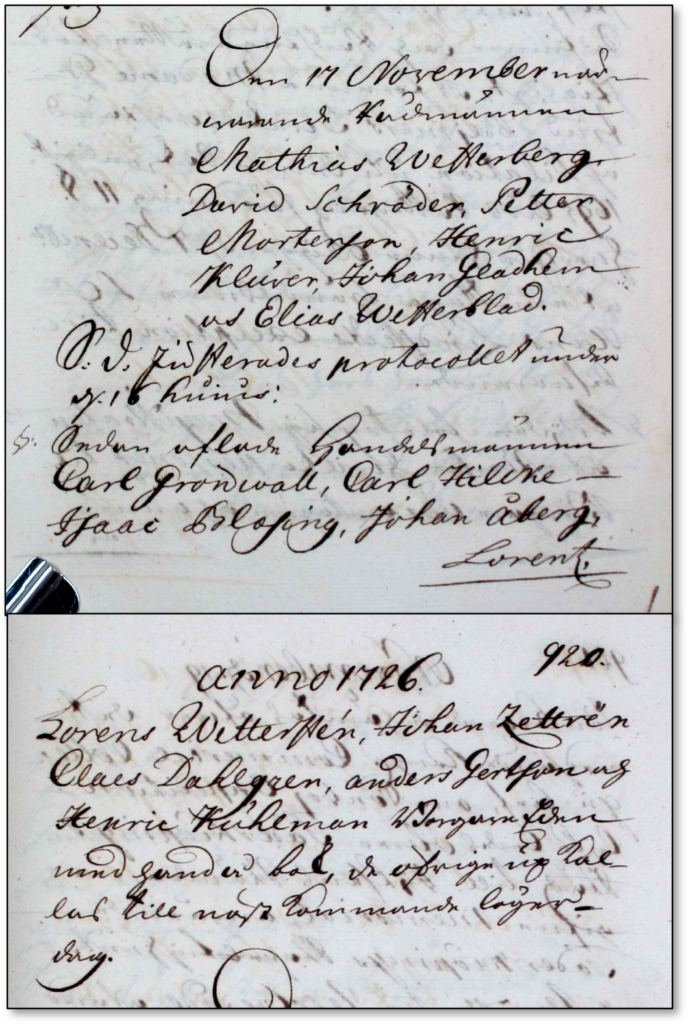 Den 17 November när-
warande Rådmännen
Mathias Wetterberg
David Schröder, Petter
Morterson, Henric
Klüver, Johan Gladhem
os Elias Wetterblad.
S. D. Justerades protocollet under
d. 16 huius:
Sedan aflade Handelsmännen
Carl Grondwall, Carl Hilcke
Isaac Blæsing, Johan Åberg,
Lorentz
920.
anno 1726.
Lorens Wetterstén, Johan Zettrén
Claes Dahlgren, anders Gertson og
Henric Kühlman Borgare Eden
med hand å bok, de öfrige up Kal-
las till näst kommande löger-
dag.